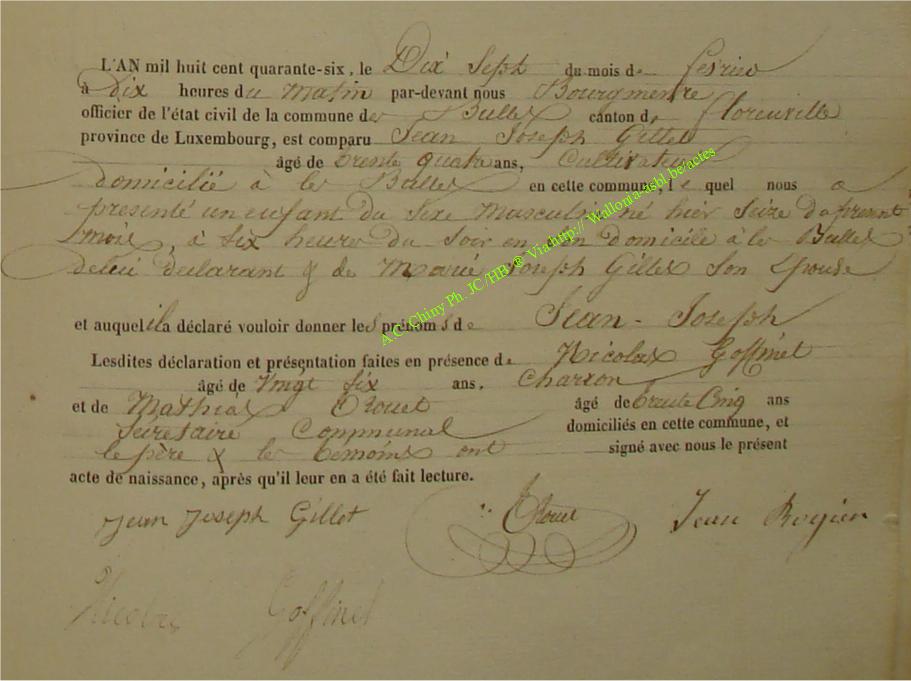 L'AN mil huit cent quarante-six, le Dix Sept du mois de fevrier
à Dix heures du Matin par-devant nous Bourgmestre
officier de l'état civil de la commune des Bulles canton de florenville
province de Luxembourg, est comparu Jean Joseph Gillet
âgé de trente quatre ans, Cultivateur
domicilié à les Bulles en cette commune, le quel nous a
présenté un enfant du Sexe Masculin né hier Seize du présent
mois, à six heures du Soir en son domicile à les Bulles
de lui declarant & de Marie Joseph Gilles Son Epouse
et auquel il a déclaré vouloir donner les prénoms de Jean-Joseph
Lesdites déclaration et présentation faites en présence de Nicolas Goffinet
âgé de Vingt Six ans, Charron
et de Mathias âgé de trente Cinq ans
Secretaire Communal domiciliés en cette commune, et
le père & les temoins ont signé avec nous le présent
acte de naissance, après qu'il leur en a été fait lecture.
Jean Joseph Gillet Jean
Nicolas Goffinet
A.C. Chiny Ph. JC/HB ® Via http:// Wallonia-asbl.be/actes